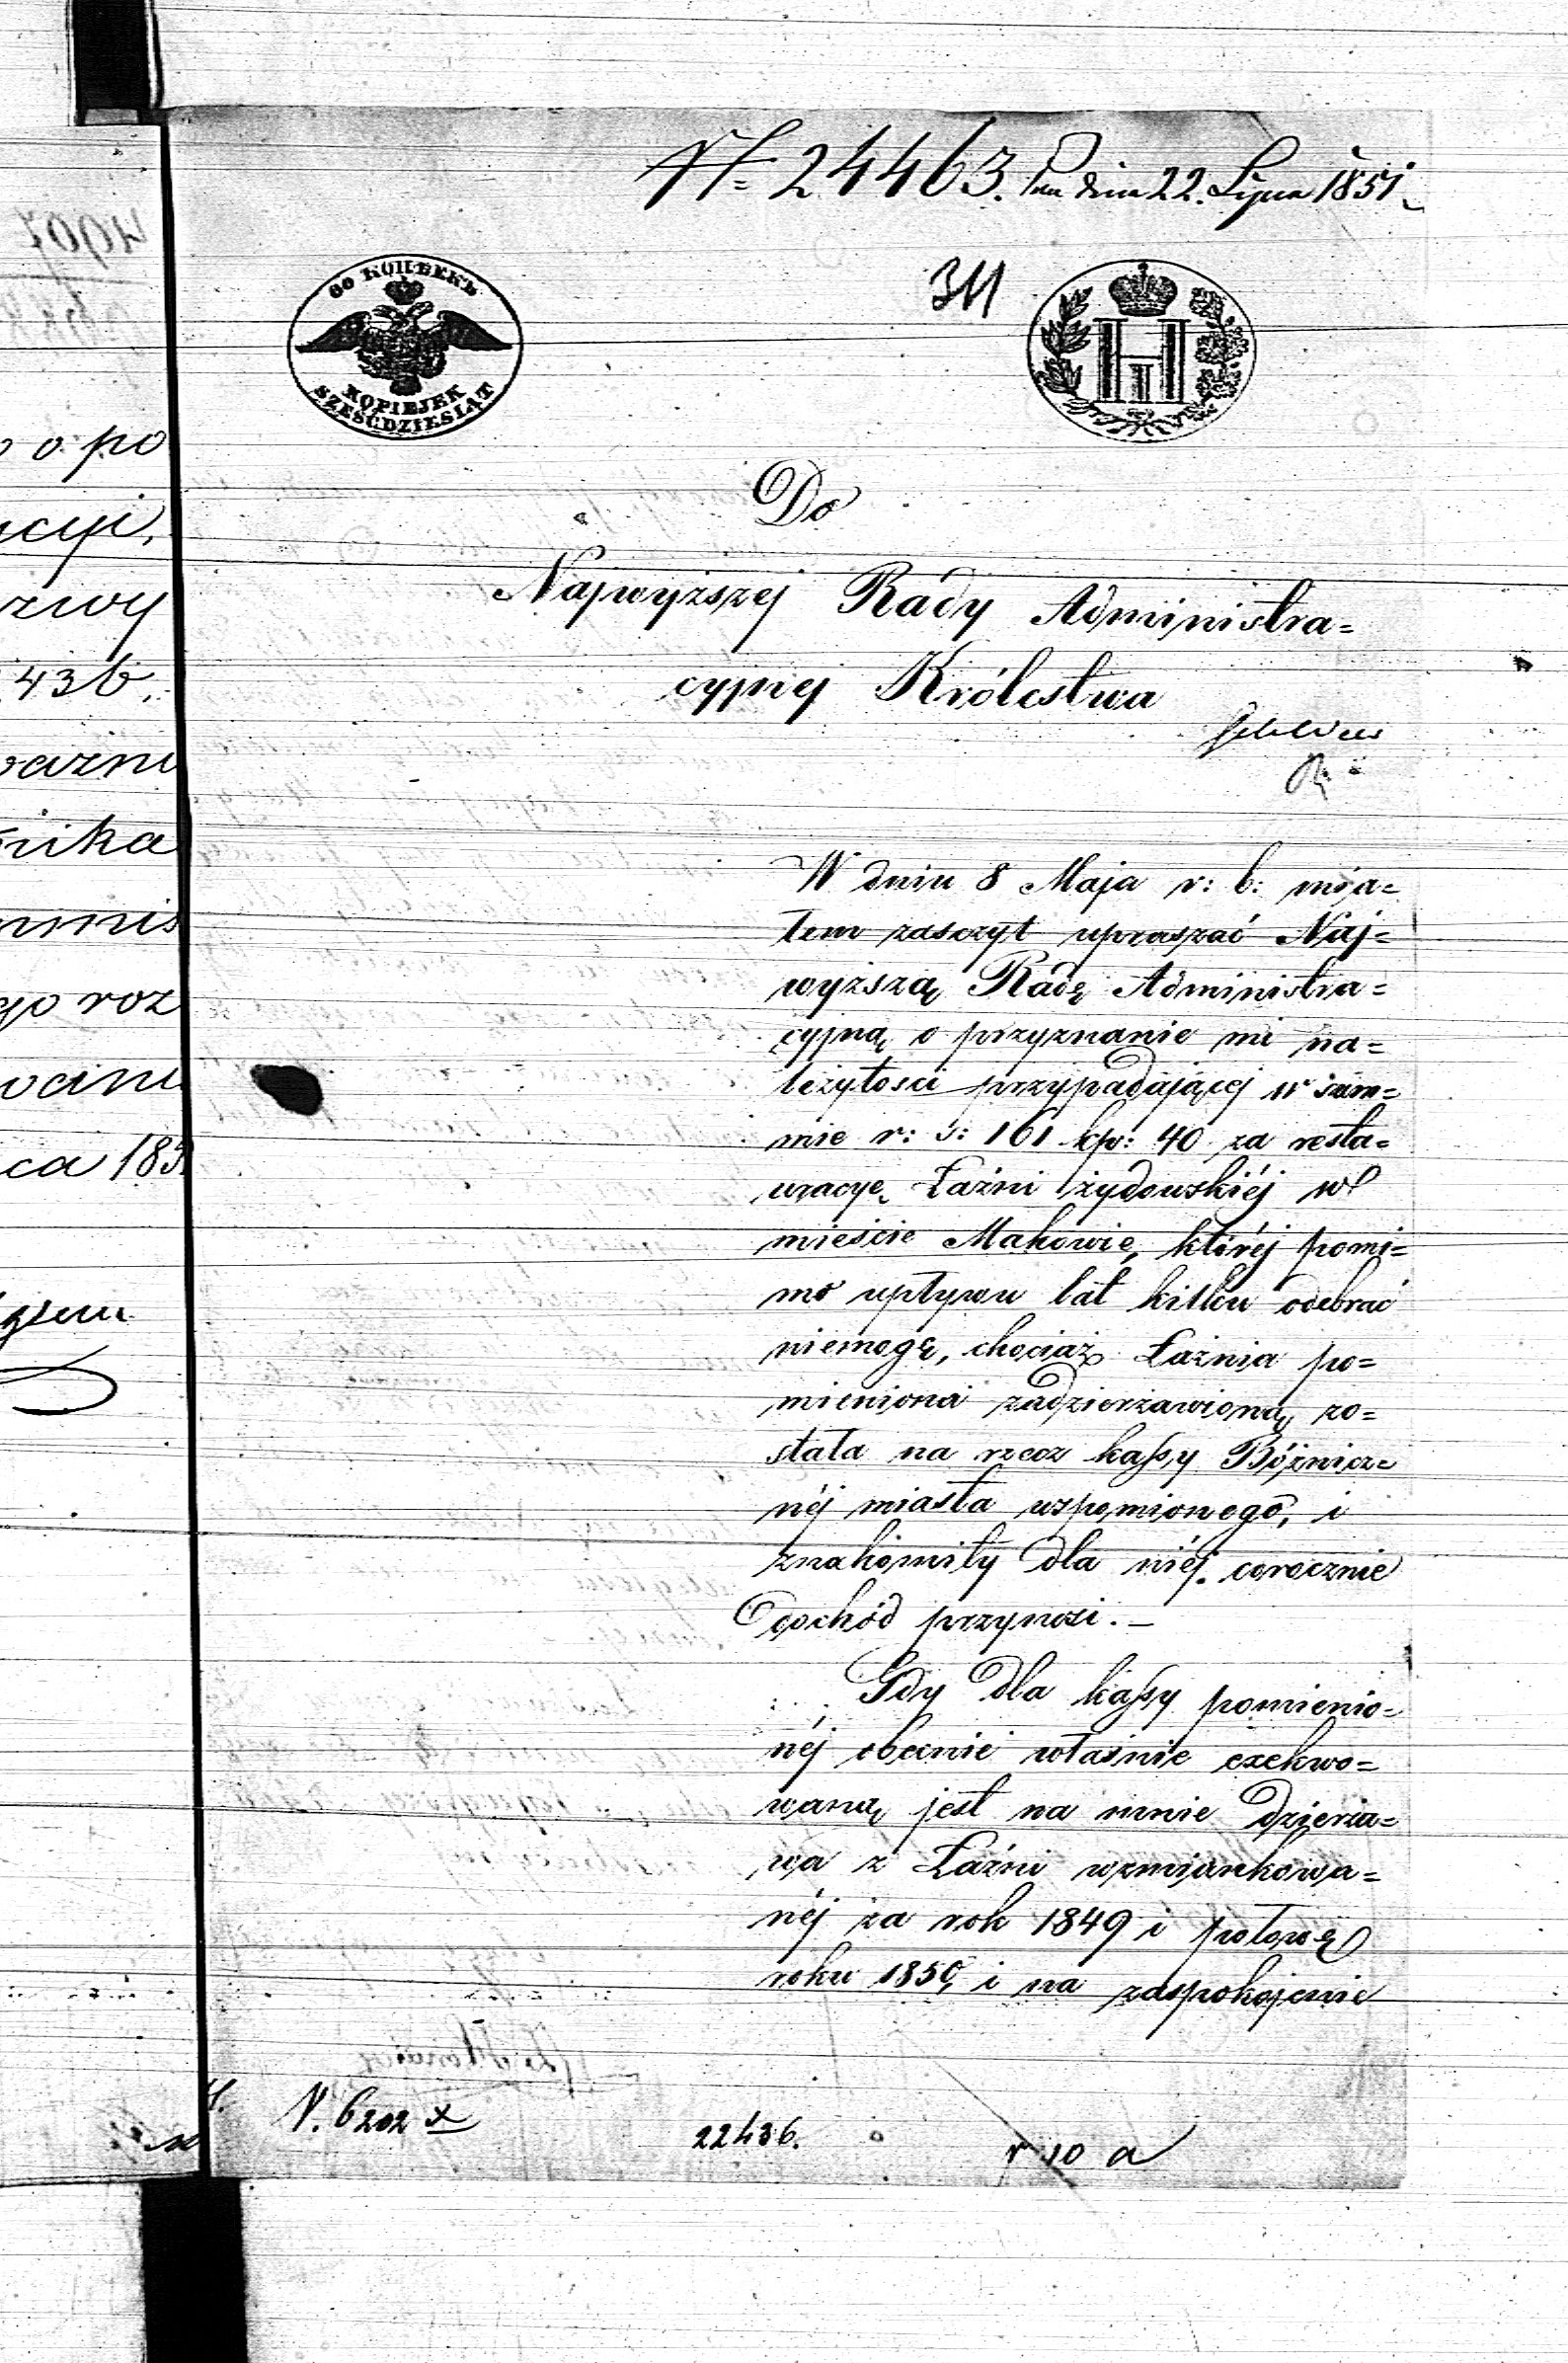 № 24463. dnia 22. Lipca 1851
311
60 КОПѢЕКЪ
KOPIEJEK
SZEŚĆDZIESIĄT
Do
Najwyższej Rady Administra=
cyjnej Królestwa
W dniu 8 Maja r: b: mia=
łem zasczyt upraszać Naj=
wyższą Radę Administra=
cyjną o przyznanie mi na=
leżytości przypadającej w sum=
mie r: s: 161 kp: 40 za resta=
uracyę Łaźni żydowskiéj w
mieście Makowie, któréj pomi=
mo upływu lat kilku odebrać
niemogę, chociaż Łaźnia po=
mieniona zadzierżawioną zo=
stała na rzecz kassy Bóżnicz=
néj miasta wspomionego, i
znakomity dla niéj corocznie
dochód przynosi. –
Gdy dla kassy pomienio=
néj obecnie właśnie exekwo=
waną jest na mnie dzierża=
wa z Łaźni wzmiankowa=
néj za rok 1849 i połowę
roku 1850, i na zaspokojenie
N. 6202
22436.
r 10 a
o po
cyi,
zwy
436.
ważni
nika
mmis
go roz
wani
ca 185